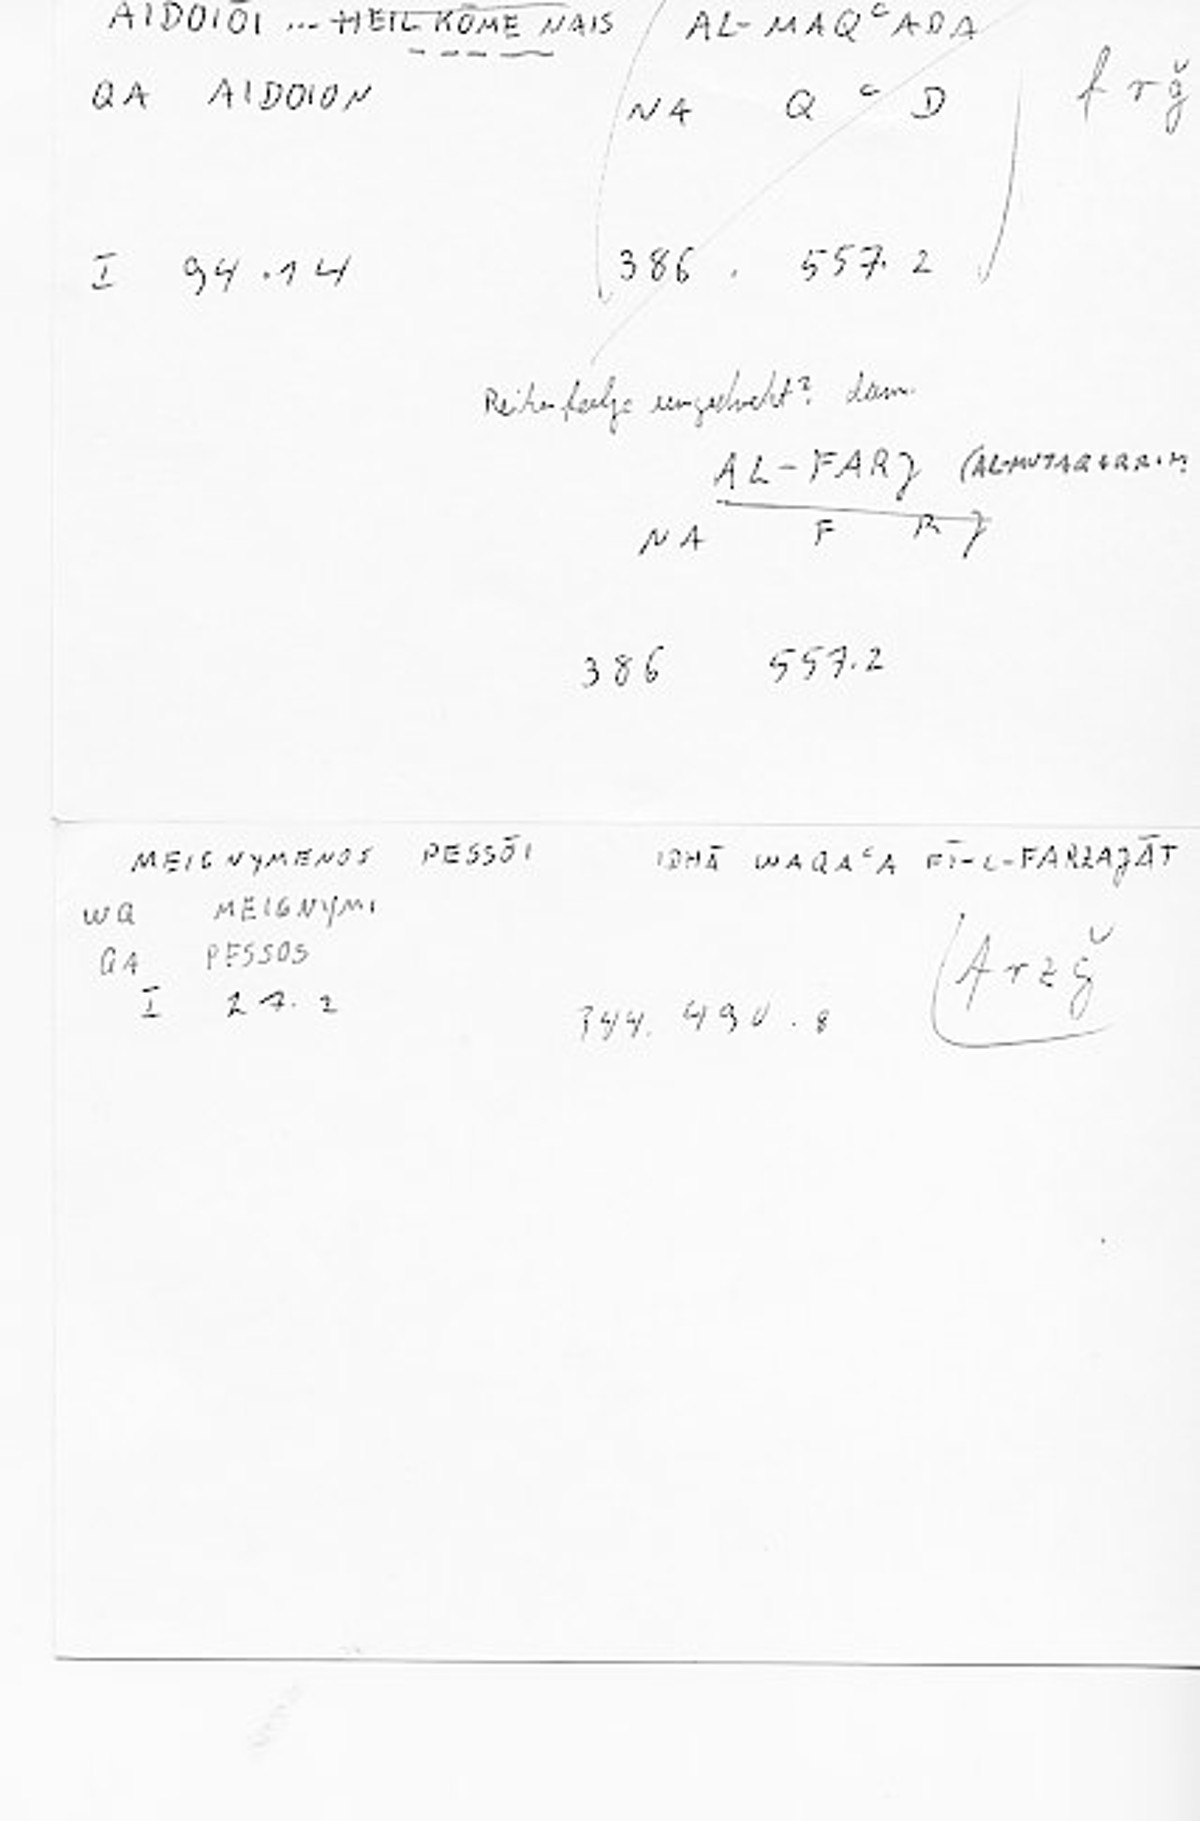 AIDOIŌI ... HEILKŌMENAIS AL-MAQᶜADA
QA AIDOION NA Q ᶜ D frǧ
I 94.14 386 . 557.2
Reihenfolge umgedreht? dann
AL-FARJ (AL-MUTAQARRIḤ
NA F R J
386 557.2
MEIGNYMENOS PESSŌI IDHĀ WAQAᶜA FĪ-L-FARZAJĀT
WQ MEIGNYMI
QA PESSOS frzǧ
I 27.2 344. 490.8